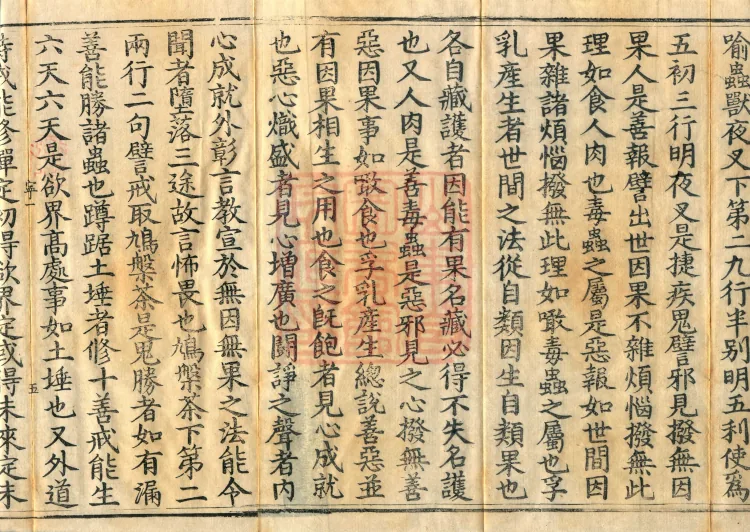 喻蟲獸夜叉下第二九行半別明五利使爲
五初三行明夜叉是捷疾鬼譬邪見撥無因
果人是善報譬出世因果不雜煩惱撥無此
理如食人肉也毒蟲之屬是惡報如世間因
果雜諸煩惱撥無此理如噉毒蟲之屬也孚
乳產生者世間之法從自類因生自類果也
各自藏護者因能有果名藏必得不失名護
也又人肉是善毒蟲是惡邪見之心撥無善
惡因果事如噉食也孚乳產生總說善惡並
有因果相生之用也食之既飽者見心成就
也惡心熾盛者見心增廣也鬪諍之聲者內
心成就外彰言教宣於無因無果之法能令
聞者墮落三途故言怖畏也鳩槃荼下第二
兩行二句譬戒取鳩槃荼是鬼勝者如有漏
善能勝諸蟲也蹲踞土埵者修十善戒能生
六天六天是欲界高處事如土埵也又外道
持戒能修禪定初得欲界定或得未來定未
五